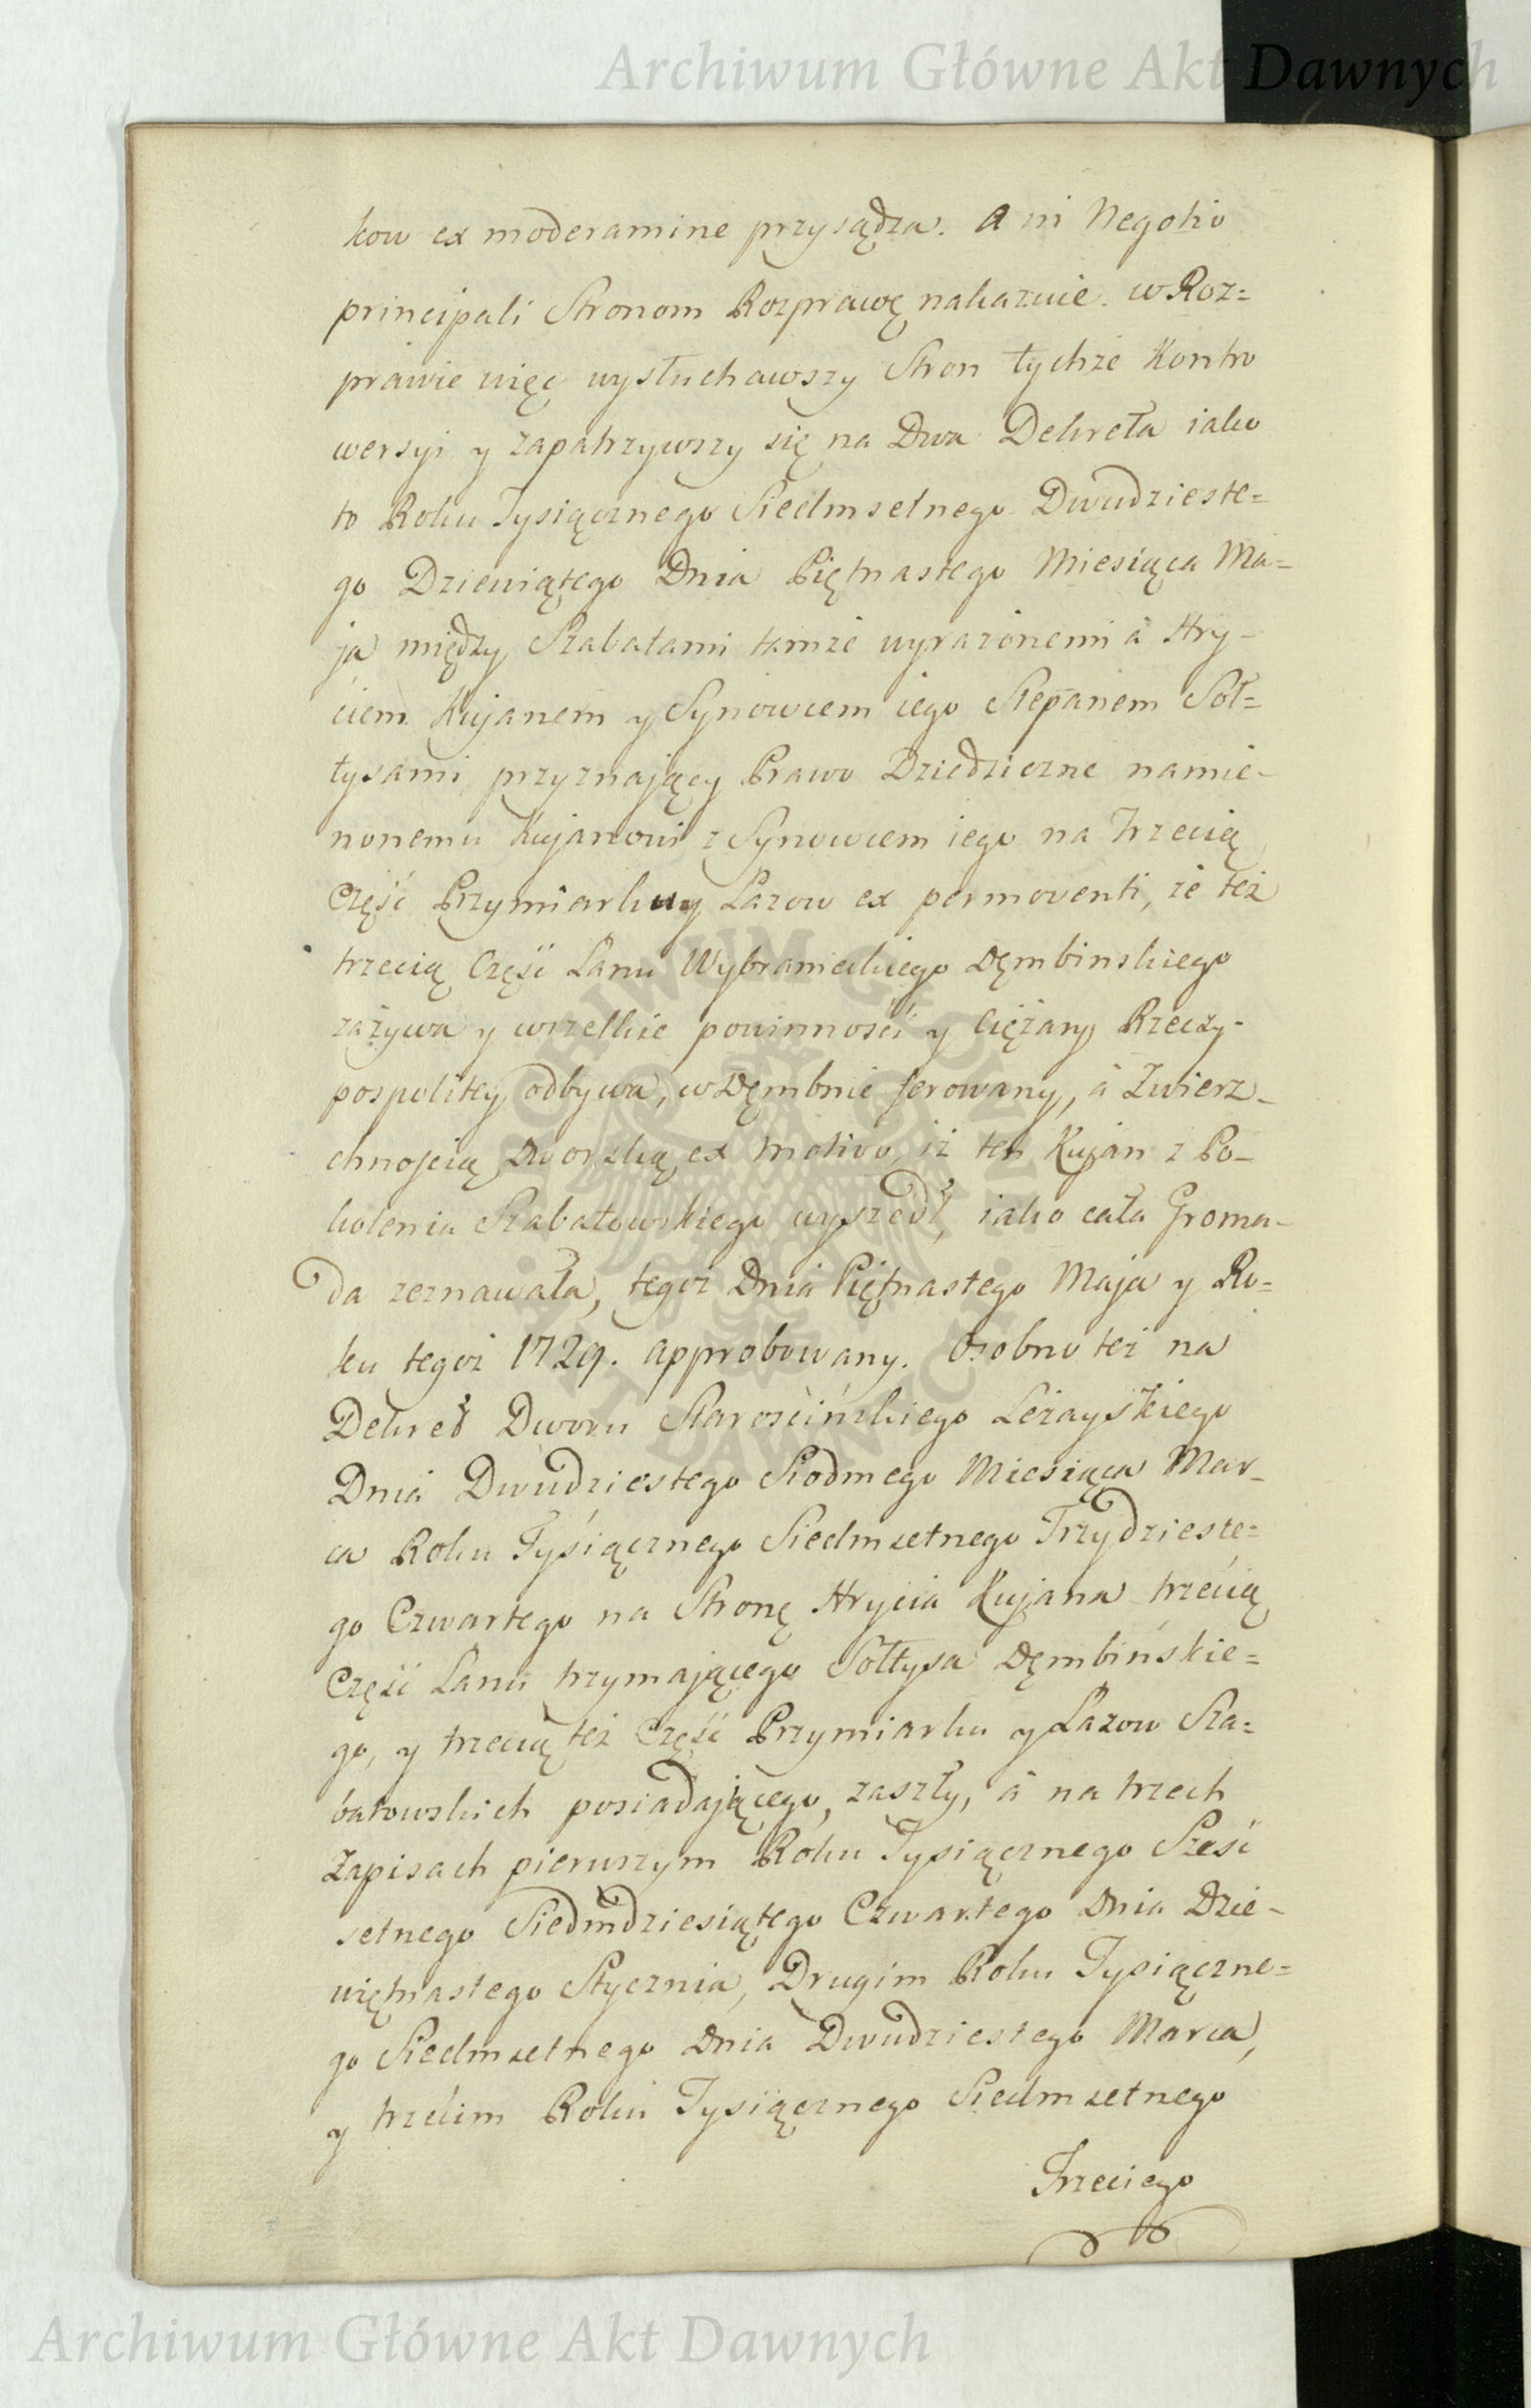 Archiwum Główne Akt Dawnych
kow ex moderamine przysądza. A in Negotio
principali Stronom Rozprawę nakazuie. w Roz=
prawie więc wysłuchawszy Stron tychże Kontro
wersyi y zapatrzywszy się na Dwa Dekreta iako
to Roku Tysiącznego Siedmsetnego Dwudzieste=
go Dziewiątego Dnia Piętnastego Miesiąca Ma-
ja między Szabatami tamże wyrażonemi á Hry-
ciem Kujanem y Synowcem iego Stepanem Soł=
tysami, przyznający Prawo Dziedziczne namie-
nonemu Kujanowi z Synowcem iego na trzecią
Część Przymiarkuy Lazow ex permoventi, że też
trzecią Część Łanu Wybranieckiego Dęmbinskiego
zażywa y wszelkie powinności y Ciężary Rzeczy-
pospolitey odbywa, w Dęmbnie ferowany, á Zwierz-
chnością Dworską ex motivo, iż ten Kujan z Po-
kolenia Szabatowskiego wyszedł, iako cała Groma-
da zeznawała, tegoż Dnia Piętnastego Maja y Ro=
ku tegoż 1729. approbowany. Osobno też na
Dekret Dworu Starościńskiego Leżayskiego
Dnia Dwudziestego Siodmego Miesiąca Mar-
ca Roku Tysiącznego Siedmsetnego Trzydzieste=
go Czwartego na Stronę Hrycia Kujana trzecią
Część Łanu trzymającego Sołtysa Dęmbińskie=
go, y trzecią też Część Przymiarku y Lazow Sza=
batowskich posiadającego, zaszły, á na trzech
Zapisach pierwszym Roku Tysiącznego Sześć
setnego Siedmdziesiątego Czwartego Dnia Dzie-
więtnastego Stycznia, Drugim Roku Tysiączne=
go Siedmsetnego Dnia Dwudziestego Marca,
y trzecim Roku Tysiącznego Siedmsetnego
Trzeciego
Archiwum Główne Akt Dawnych